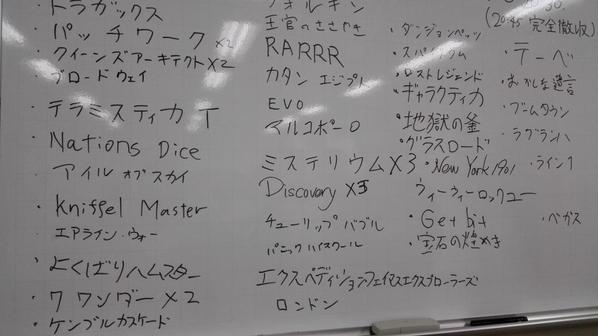 ・トラガックス
・パッチワーク×2
・クイーンズアーキテクト×2
・ブロードウェイ
・テラミスティカ T
・Nations Dice
・アイル オブ スカイ
・Kniffel Master
エアライン・ウォー
・よくばりハムスター
・7 ワンダー×2
・ケンブルカスケード
王宮のささやき
RARRR
カタン エジプト
EVO
マルコポーロ
ミステリウム×3
Discovery ×3
チューリップバブル
パニックハイスクール
エクスペディションフェイマスエクスプローラーズ
ロンドン
・ダンジョンペッツ
・ロストレジェンド
・ギャラクティカ
・地獄の釜
・グラスロード
・New York 1901
ウィーウィーロックユー
・Get bit
・宝石の煌めき
(20:45 完全撤収)
・テーベ
・おかしな遺言
・ブームタウン
・ラグランハ
・ライン1
・ベガス